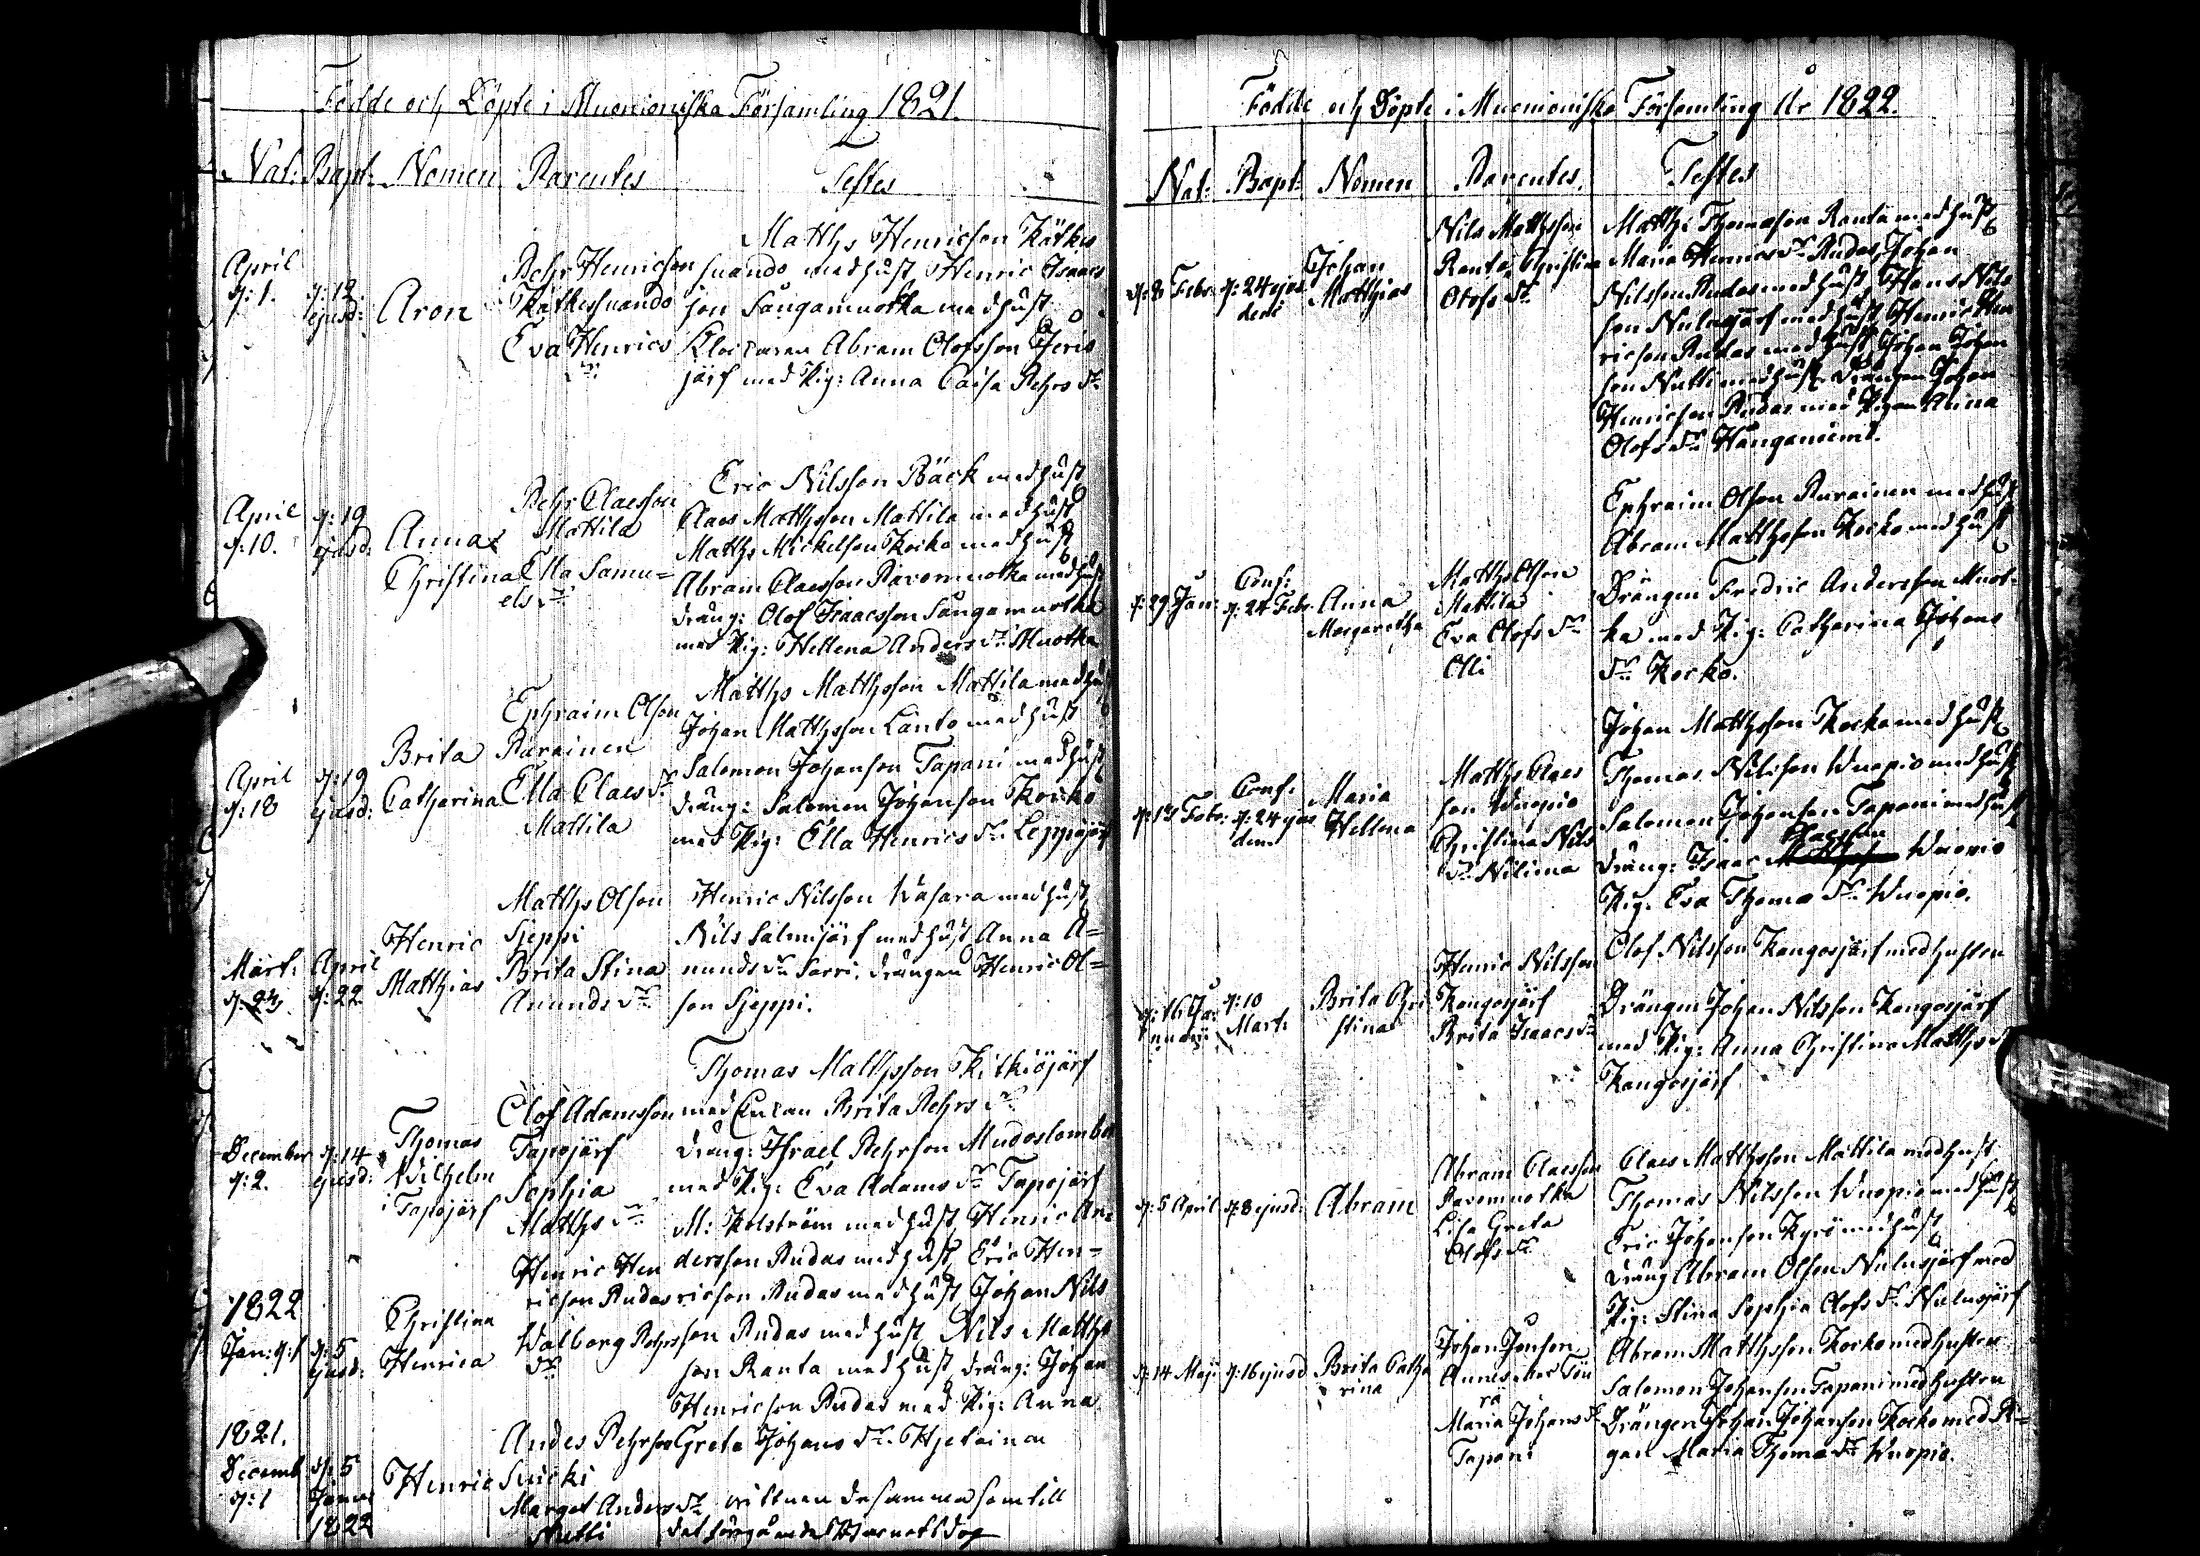 Födde och Döpte i Muonioniska Församling 1821.
Nat: Bapt: Nomen Parentes Testes
April
d: 1.
d: 12
ejusd:
Aron
Pehr Henricson
Kätkesuando
Eva Henrics
dr:
Matths Henricson Kätke
suando med hust Henric Isaacs
son Sångamuotka med hust
Klockaren Abram Olofsson Jeris
järf med Pig: Anna Caisa Pehrs dr
April
d: 10.
d: 19
ejusd:
Anna
Christina
Pehr Claesson
Mattila
Ella Samu=
els dr
Eric Nilsson Bäck med hust
Claes Matthsson Mattila med hust
Matths Mickelson Kocko med hust
Abram Claesson Pavomuotka med hust
dräng: Olof Isaacsson Sångamuotka
med Pig: Hellena Anders dr Muotka
April
d: 18
d: 19
ejusd:
Brita
Catharina
Ephraim Olson
Rurainen
Ella Claes dr
Mattila
Matths Matthsson Mattila med hust
Johan Matthsson Lanto med hust
Salomon Johanson Tapani med hust
dräng: Salomon Johanson Kocko
med Pig: Ella Henrics dr Leppäjärf
Mart:
d: 23
April
d: 22
Henric
Matthias
Matths Olson
Sjeppi
Brita Stina
Anunds dr
Henric Nilsson Wasara med hust
Nils Salmijärf med hust Anna A=
nunds dr Sarri, drängen Henric Ol=
son Sjeppi.
December
d: 2.
d: 14
ejusd:
Thomas
Wilhelm
i Tapojärf
Olof Adamsson
Tapojärf
Sophia
Matths dr
Thomas Matthsson Kitkiöjärf
med Enkan Brita Pehrs dr
dräng: Israel Pehrson Mudoslombo
med Pig: Eva Adams dr Tapojärf
1822
Jan: d: 1
d: 5
ejusd:
Christina
Henrica
Henric Hen
ricson Rudas
Walborg Pehrs
dr
M: Kolström med hust Henric An
dersson Rudas med hust, Eric Hen=
ricson Rudas med hust Johan Nils
son Rudas med hust Nils Matths
son Ranta med hust dräng: Johan
Henricson Rudas med Pig: Anna
Greta Johans dr Hietainen
1821.
Decemb
d: 1
d: 5
Januar
1822
Henric
Andes Pehrson
Suicki
Marget Anders dr
vittnen desamma som till
det föregåendet Barnets dop
Födde och Döpte i Muonioniska Församling År 1822.
Nat: Bapt: Nomen Parentes. Testes
d: 8 Febr:
d: 24 ejus
dem
Johan
Matthias
Nils Matthsson
Ranta, Christina
Olofs dr
Matths Thomason Ranta med hust
Maria Henrics dr Rudas, Johan
Nilsson Rudas med hust, Hans Nils
son Nulusjärf med hust Henric Hen
ricson Rudas med hust, Johan Johan
son Nutti med hust Drängen Johan
Henricson Rudas med Pigan Anna
Olofs dr Hanganiemi.
d: 29 Jan:
Conf:
d: 24 Febr.
Anna
Margaretha
Matths Olson
Mattila
Eva Olofs dr
Olli
Ephraim Olson Rurainen med hust
Abram Matthsson Kocko med hust
Drängen Fredric Andersson Muot-
ka med Pig: Catharina Johans
dr Kocko.
d: 13 Febr:
Conf:
d: 24 ejus
dem
Maria
Hellena
Matths Claes
son Wuopio
Christina Nils
dr Nilima
Johan Matthsson Kocko med hust
Thomas Nilsson Wuopio med hust
Salomon Johanson Tapani med hust
Claesson
dräng: Isaac Wuopio
Pig: Eva Thomæ dr Wuopio.
d: 16 Ja:
nuarii
d: 10
Mart:
Brita Chri
stina
Henric Nilsson
Kangosjärf
Brita Isaacs dr
Olof Nilsson Kangosjärf med hustru
Drängen Johan Nilsson Kangosjärf
med Pig: Anna Christina Matths dr
Kangosjärf
d: 5 April
d: 8 ejusd:
Abram
Abram Claesson
Pavomuotka
Lisa Greta
Olofs dr
Claes Matthsson Mattila med hust
Thomas Nilsson Wuopio med hust
Eric Johanson Kyrö med hust
dräng Abram Olson Nulusjärf med
Pig: Stina Sophia Olofs dr Nulusjärf
d: 14 Maji
d: 16 ejusd
Brita Catha
rina
Johan Jonson
Maria Johans dr
Tapani
Abram Matthsson Kocko med hustru
Salomon Johanson Tapani med hustru
Drängen Johan Johanson Kocko med Pi=
gan Maria Thomæ dr Wuopio.